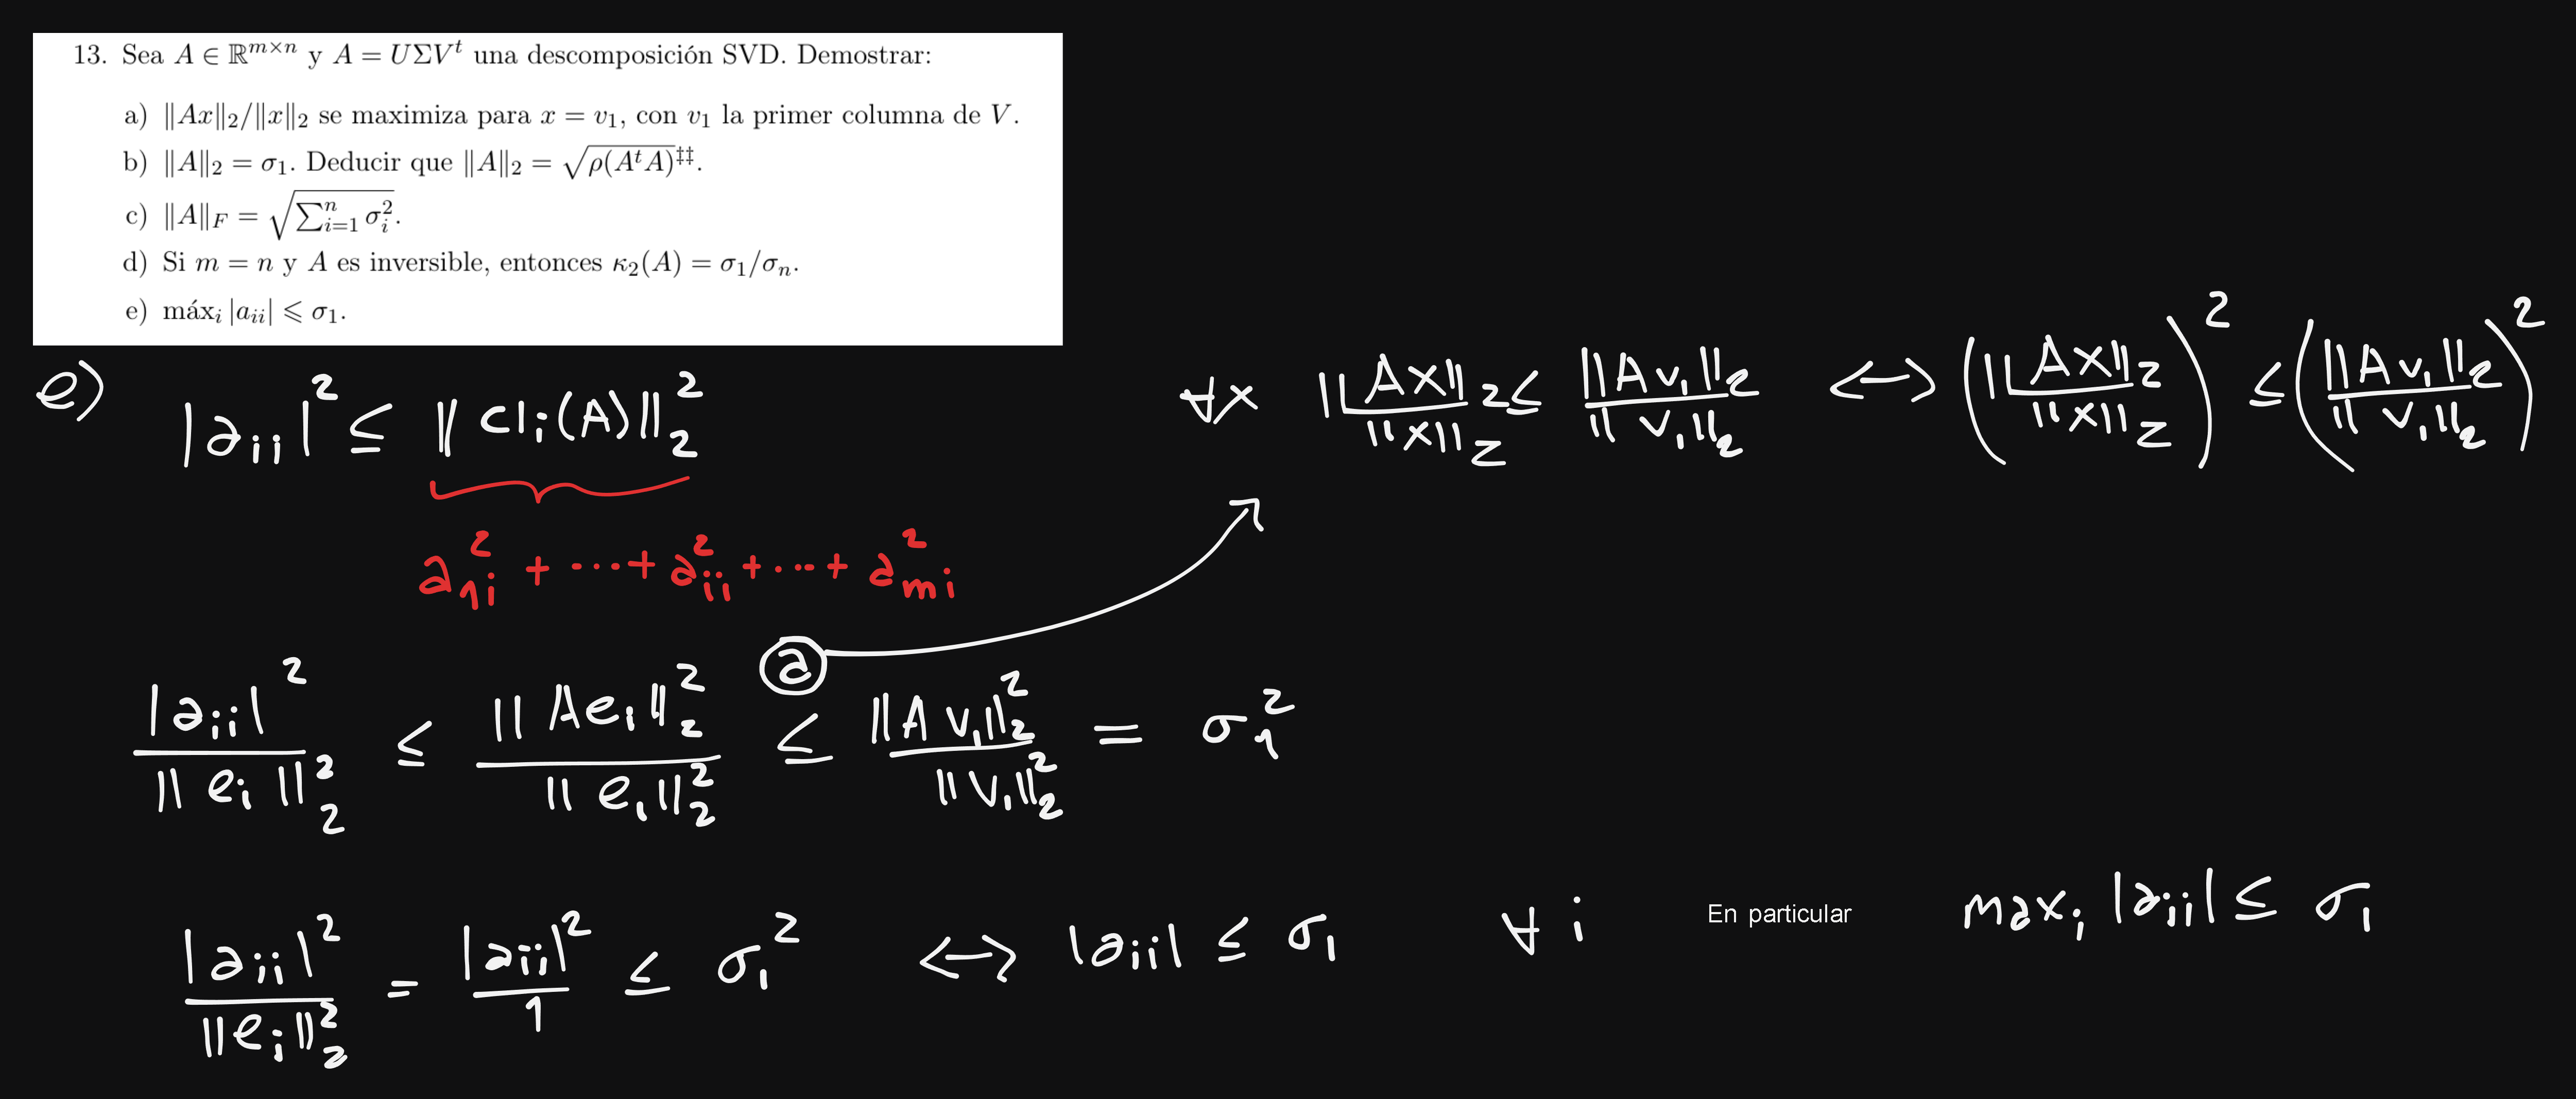 13. Sea A ∈ ℝ^{m×n} y A = UΣV^t una descomposición SVD. Demostrar:
a) ‖Ax‖₂/‖x‖₂ se maximiza para x = v₁, con v₁ la primer columna de V.
b) ‖A‖₂ = σ₁. Deducir que ‖A‖₂ = √ρ(A^tA)^{‡‡}.
c) ‖A‖_F = √∑_{i=1}^n σ_i².
d) Si m = n y A es inversible, entonces κ₂(A) = σ₁/σ_n.
e) máx_i |a_{ii}| ⩽ σ₁.
e) |a_{ii}|² ≤ ‖cl_i(A)‖₂²
∀x ‖Ax‖₂/‖x‖₂ ≤ ‖Av₁‖₂/‖v₁‖₂ ↔ (‖Ax‖₂/‖x‖₂)² ≤ (‖Av₁‖₂/‖v₁‖₂)²
a_{1i}² + ... + a_{ii}² + ... + a_{mi}²
a
|a_{ii}|²/‖e_i‖₂² ≤ ‖Ae_i‖₂²/‖e_i‖₂² ≤ ‖Av₁‖₂²/‖v₁‖₂² = σ₁²
|a_{ii}|²/‖e_i‖₂² = |a_{ii}|²/1 ≤ σ₁² ↔ |a_{ii}| ≤ σ₁ ∀i En particular max_i |a_{ii}| ≤ σ₁